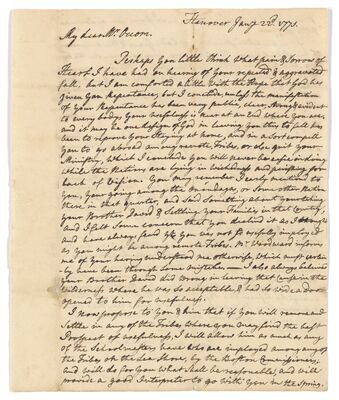 Hanover Jany 22d. 1771.
My dear Mr. Occom.
Perhaps you little think what pain & Sorrow of
Heart I have had on hearing of your repeated & aggravated
fall, but I am comforted a little with the Hope that God has
given you Repentance, but I consider, unless the manifestation
of your Repentance has been very public, clear, strong & evident
to every body, your usefulness is near at an End where you are,
and it may be one design of God in leaving you thus to fall has
been to reprove your Staying at home, and in a Sort compell
you to go abroad among remote Tribes, or else quit your
Ministry, which I conclude you will never be easie in doing
while the Nations are lying in wickedness and perishing for
lack of Vision. You may remember I early mentioned to
you, your going among the Onondagas, or Some other Nation
there in that quarter, and said Something about your taking
your Brother David & Settling your Families in that Country
and I felt Some concern that you declined it as I thought
and have always feared yt you was not so usefully employed
as you might be among remote Tribes. Mr. Woodward informs
me of your having understood me otherwise, which must certain-
ly have been through Some mistake, and I also always believed
your Brother David did wrong in leaving that people in the
Wilderness where he was so acceptable & had So wide a door
opened to him for usefulness.
I now propose to you & him that if you will remove and
Settle in any of the Tribes where you may find the best
Prospect of usefulness, I will allow him as much as any
of the Schoolmasters have who are imployed among any of
the Tribes on the Sea Shore, by the Boston Commissioners,
and will do for you what shall be reasonable, and will
provide a good Interpreter to go with you in the Spring.